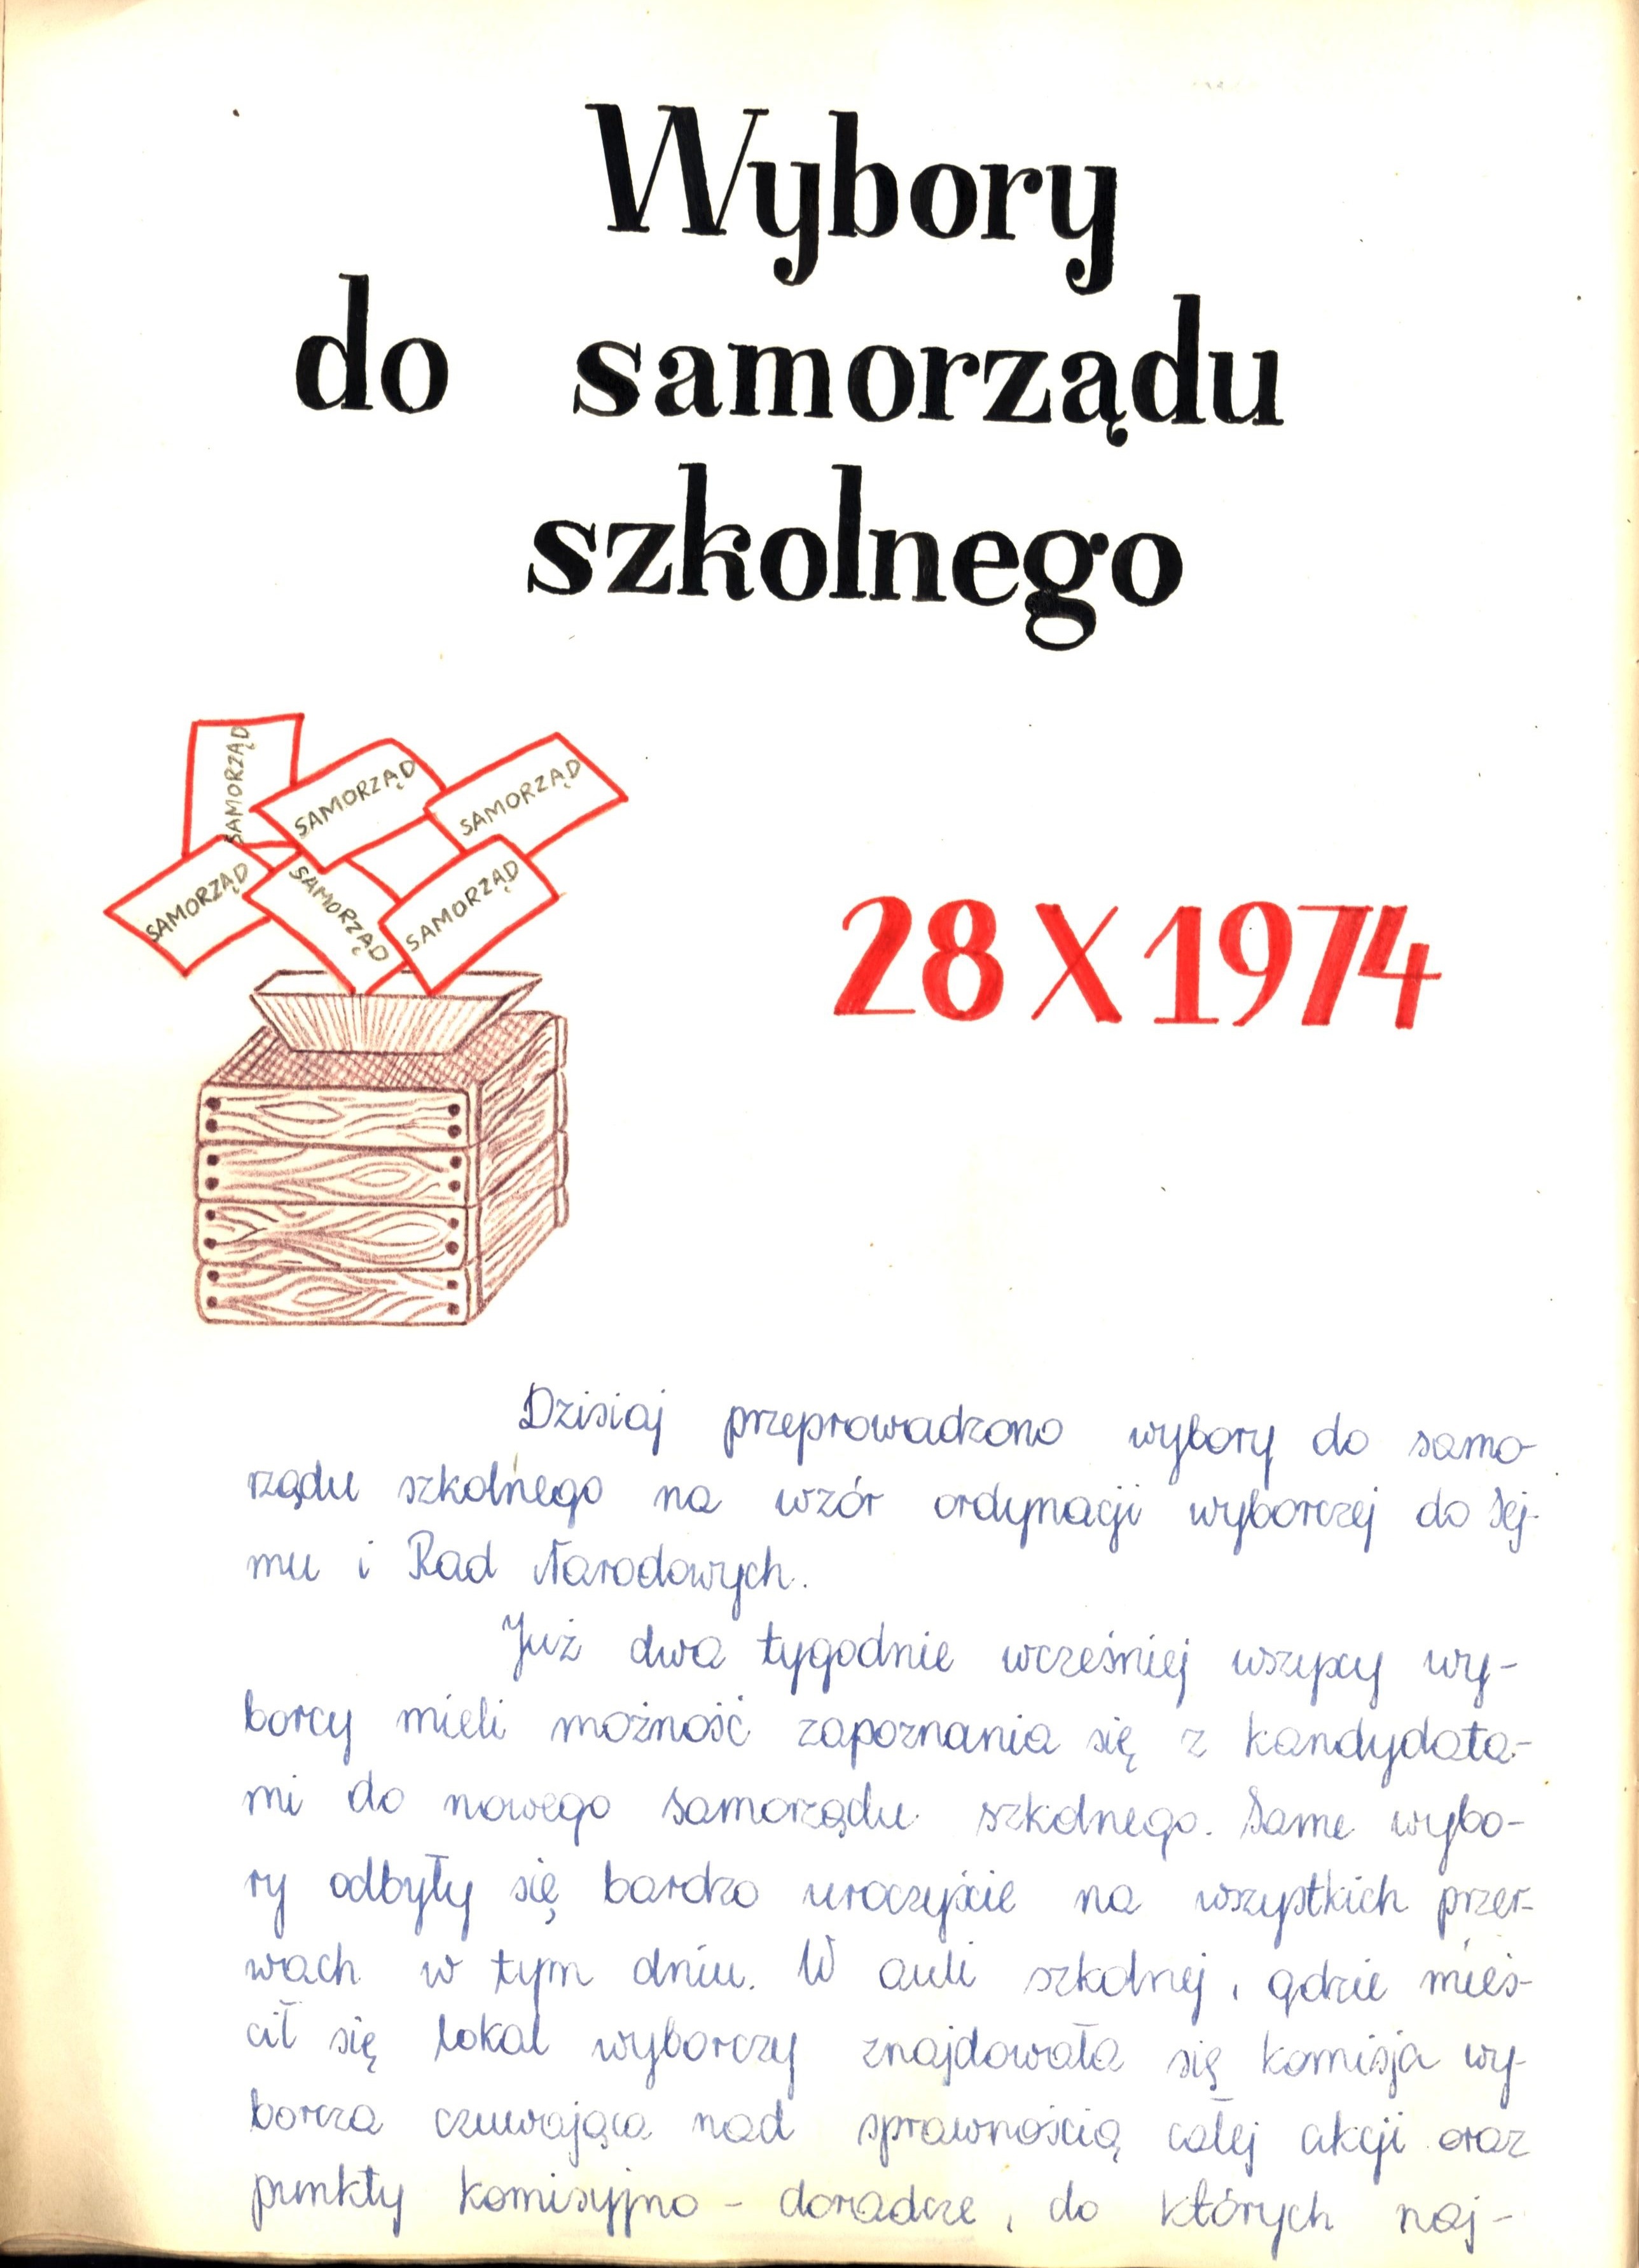 Wybory
do samorządu
szkolnego
SAMORZĄD
SAMORZĄD
SAMORZĄD
SAMORZĄD
SAMORZĄD
SAMORZĄD
28 X 1974
Dzisiaj przeprowadzono wybory do samo-
rządu szkolnego na wzór ordynacji wyborczej do Sej-
mu i Rad Narodowych.
Już dwa tygodnie wcześniej wszyscy wy-
borcy mieli możność zapoznania się z kandydata-
mi do nowego samorządu szkolnego. Same wybo-
ry odbyły się bardzo uroczyście na wszystkich przer-
wach w tym dniu. W auli szkolnej, gdzie mieś-
cił się lokal wyborczy znajdowała się komisja wy-
borcza czuwająca nad sprawnością całej akcji oraz
punkty komisyjno - doradcze, do których naj-